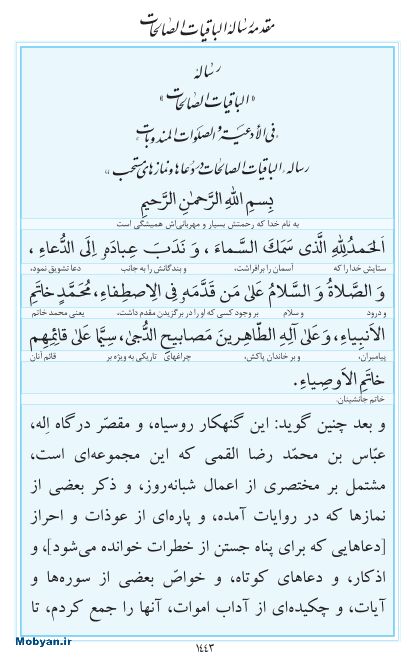 مقدمه رسالهٔ الباقیات الصالحات
رسالهٔ
«الباقیات الصالحات»
«فی الأدعیة و الصلوات المندوبات»
رساله «الباقیات الصالحات در دعاها و نمازهای مستحب»
بِسمِ اللهِ الرَّحمٰنِ الرَّحیمِ
به نام خدا که رحمتش بسیار و مهربانی‌اش همیشگی است
اَلحَمدُلِلّهِ الَّذی سَمَكَ السَّماءَ، وَ نَدَبَ عِبادَهُ اِلَی الدُّعاءِ،
ستایش خدا را که آسمان را برافراشت، و بندگانش را به جانب دعا تشویق نمود،
وَ الصَّلاةُ وَ السَّلامُ عَلیٰ مَن قَدَّمَهُ فِی الاِصطِفاءِ، مُحَمَّدٍ خاتَمِ
و درود و سلام بر وجود کسی که او را در برگزیدن مقدم داشت، یعنی محمد خاتم
الاَنبِیاءِ، وَ عَلیٰ آلِهِ الطّاهِرینَ مَصابیحِ الدُّجیٰ، سِیَّما عَلیٰ قائِمِهِم
پیامبران، و بر خاندان پاکش، چراغهای تاریکی به ویژه بر قائم آنان
خاتَمِ الاَوصِیاءِ.
خاتم جانشینان.
و بعد چنین گوید: این گنهکار روسیاه، و مقصّر درگاه اِله،
عبّاس بن محمّد رضا القمی که این مجموعه‌ای است،
مشتمل بر مختصری از اعمال شبانه‌روز، و ذکر بعضی از
نمازها که در روایات آمده، و پاره‌ای از عوذات و احراز
[دعاهایی که برای پناه جستن از خطرات خوانده می‌شود]، و
اذکار، و دعاهای کوتاه، و خواصّ بعضی از سوره‌ها و
آیات، و چکیده‌ای از آداب اموات، آنها را جمع کردم، تا
۱۴۴۳
Mobyan.ir